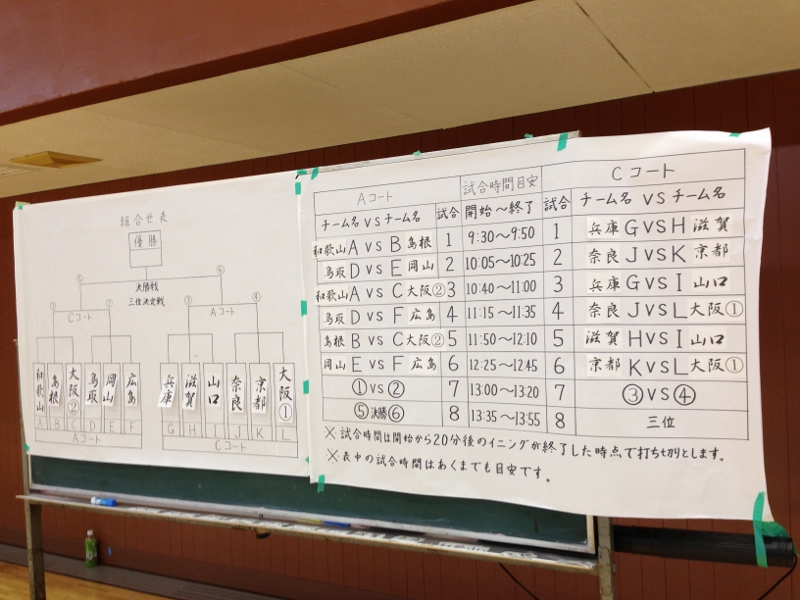 組合せ表
優勝
⑤ ⑥
決勝戦
三位決定戦
① ② ③ ④
Cコート Aコート
和歌山 島根 大阪② 鳥取 岡山 広島 兵庫 滋賀 山口 奈良 京都 大阪①
A B C D E F G H I J K L
Aコート Cコート
Aコート 試合時間目安 Cコート
チーム名 VS チーム名 試合 開始〜終了 試合 チーム名 VS チーム名
和歌山 A VS B 島根 1 9:30〜9:50 1 兵庫 G VS H 滋賀
鳥取 D VS E 岡山 2 10:05〜10:25 2 奈良 J VS K 京都
和歌山 A VS C 大阪② 3 10:40〜11:00 3 兵庫 G VS I 山口
鳥取 D VS F 広島 4 11:15〜11:35 4 奈良 J VS L 大阪①
島根 B VS C 大阪② 5 11:50〜12:10 5 滋賀 H VS I 山口
岡山 E VS F 広島 6 12:25〜12:45 6 京都 K VS L 大阪①
① VS ② 7 13:00〜13:20 7 ③ VS ④
⑤ 決勝 ⑥ 8 13:35〜13:55 8 三位
※ 試合時間は開始から20分後のイニングが終了した時点で打ち切りとします。
※ 表中の試合時間はあくまでも目安です。